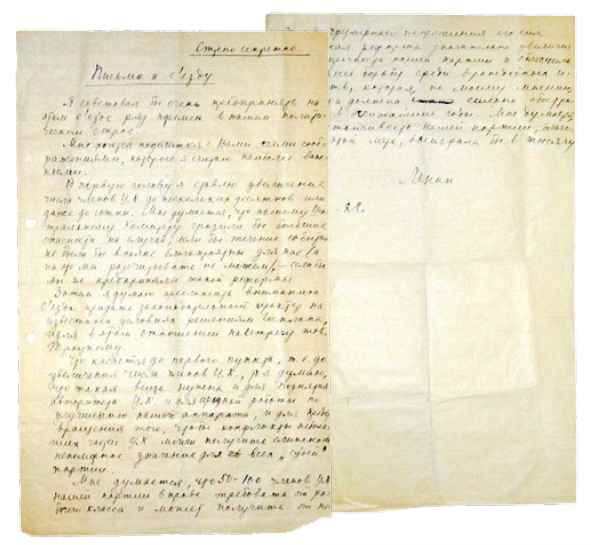 Строго секретно
Письмо к съезду
Я советовал бы очень предпринять на
этом съезде ряд перемен в нашем полити-
ческом строе.
Мне хочется поделиться с Вами теми сооб-
ражениями, которые я считаю наиболее важ-
ными.
В первую голову я ставлю увеличение
числа членов Ц.К. до нескольких десятков или
даже до сотни. Мне думается, что нашему Цен-
тральному Комитету грозили бы большие
опасности на случай, если бы течение событий
не было бы вполне благоприятно для нас (а
на это мы рассчитывать не можем), — если бы
мы не предприняли такой реформы.
Затем я думаю предложить вниманию
съезда придать законодательный характер на
известных условиях решениям Госплана,
идя в этом отношении навстречу тов.
Троцкому.
Что касается до первого пункта, т.е. до
увеличения числа членов Ц.К., то я думаю,
что такая вещь нужна и для поднятия
авторитета Ц.К. и для серьезной работы по
улучшению нашего аппарата, и для предот-
вращения того, чтобы конфликты неболь-
ших частей Ц.К. могли получить слишком
непомерное значение для всех „судеб"
партии.
Мне думается, что 50-100 членов Ц.К.
наша партия вправе требовать от ра-
бочего класса и может получить от не-
чрезмерного напряжения его сил.
реформа значительно увеличила
прочность нашей партии и облегчила
борьбу среди враждебных
которая, по моему мнению,
должна сильно обостри
в ближайшие годы. Мне думается
устойчивость нашей партии
мере, выиграла бы в тысячу
Ленин
22.